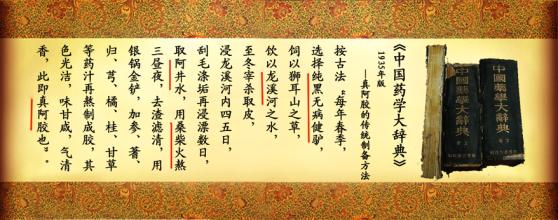 《中国药学大辞典》
1935年版
——真阿胶的传统制备方法
按古法“每年春季，
选择纯黑无病健驴，
饲以狮耳山之草，
饮以龙溪河之水，
至冬宰杀取皮，
浸龙溪河内四五日，
刮毛涤垢再浸漂数日，
取阿井水，用桑柴火熬
三昼夜，去渣滤清，用
银锅金铲，加参、蓍、
归、芎、橘、桂、甘草
等药汁再熬制成胶，其
色光洁，味甘咸，气清
香，此即真阿胶也”。
中國藥學大辭典
中國藥學大辭典